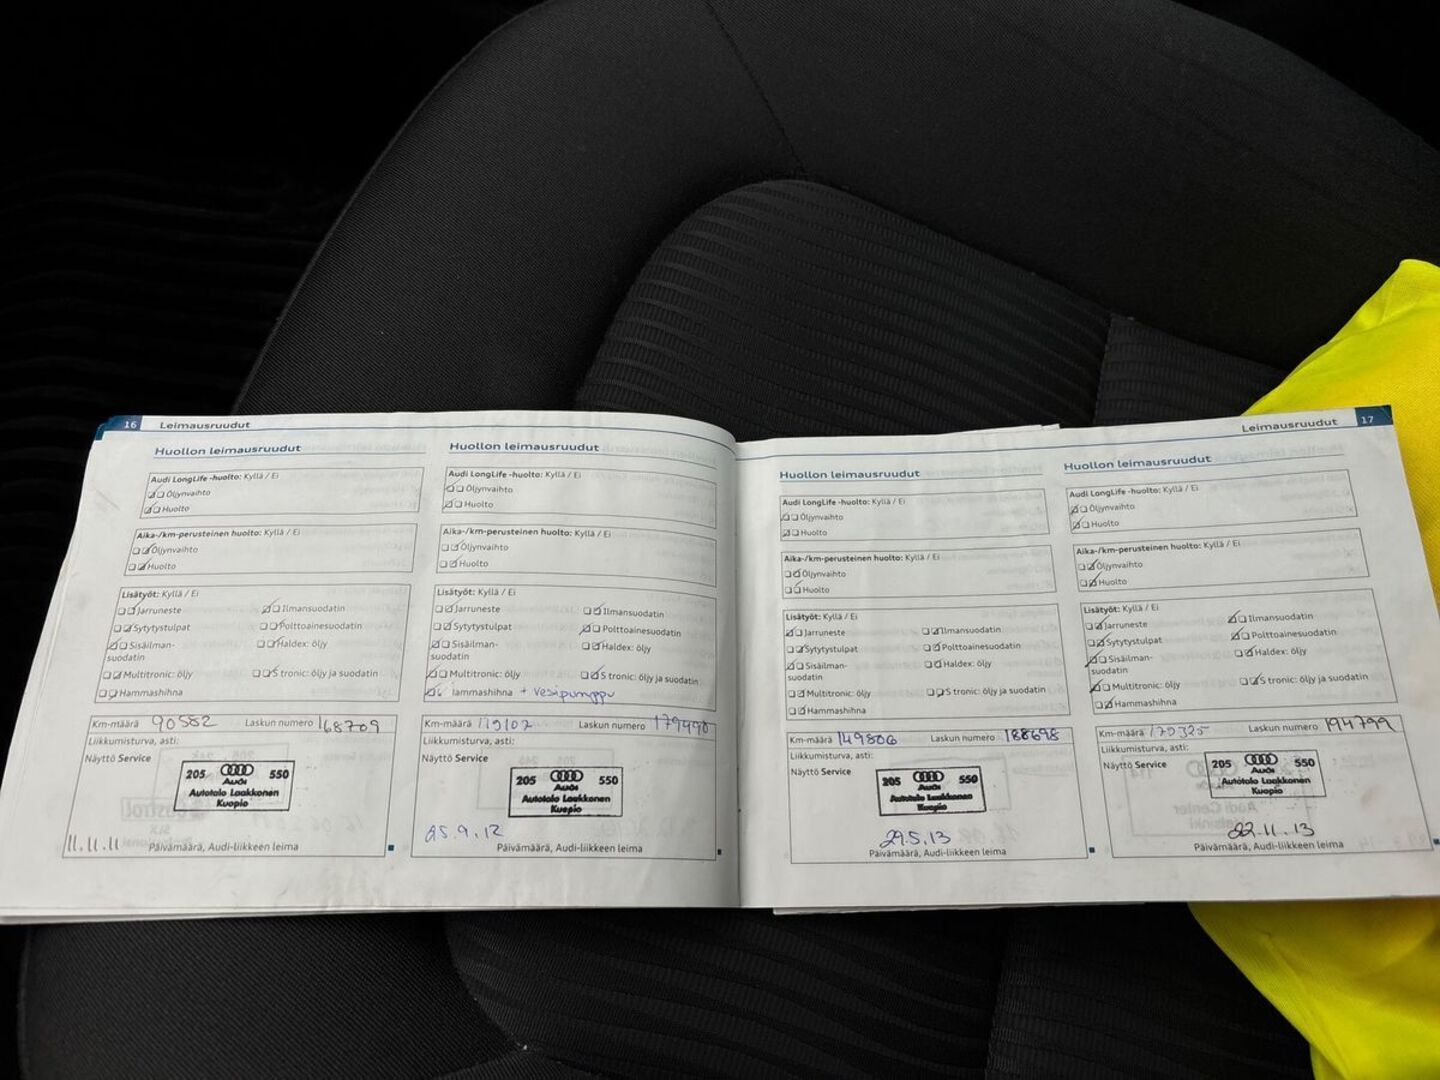 16 Leimausruudut
Huollon leimausruudut
Audi LongLife -huolto: Kyllä / Ei
Öljynvaihto
Huolto
Aika-/km-perusteinen huolto: Kyllä / Ei
Öljynvaihto
Huolto
Lisätyöt: Kyllä / Ei
Jarruneste
Ilmansuodatin
Sytytystulpat
Polttoainesuodatin
Sisäilman-
suodatin
Haldex: öljy
Multitronic: öljy
S tronic: öljy ja suodatin
Hammashihna
Km-määrä 90582 Laskun numero 168709
Liikkumisturva, asti:
Näyttö Service
205 550
Audi
Autotalo Laakkonen
Kuopio
11.11.11
Päivämäärä, Audi-liikkeen leima
Huollon leimausruudut
Audi LongLife -huolto: Kyllä / Ei
Öljynvaihto
Huolto
Aika-/km-perusteinen huolto: Kyllä / Ei
Öljynvaihto
Huolto
Lisätyöt: Kyllä / Ei
Jarruneste
Ilmansuodatin
Sytytystulpat
Polttoainesuodatin
Sisäilman-
suodatin
Haldex: öljy
Multitronic: öljy
S tronic: öljy ja suodatin
Hammashihna + vesipumppu
Km-määrä Laskun numero 179490
Liikkumisturva, asti:
Näyttö Service
205 550
Audi
Autotalo Laakkonen
Kuopio
25.9.12
Päivämäärä, Audi-liikkeen leima
Leimausruudut 17
Huollon leimausruudut
Audi LongLife -huolto: Kyllä / Ei
Öljynvaihto
Huolto
Aika-/km-perusteinen huolto: Kyllä / Ei
Öljynvaihto
Huolto
Lisätyöt: Kyllä / Ei
Jarruneste
Ilmansuodatin
Sytytystulpat
Polttoainesuodatin
Sisäilman-
suodatin
Haldex: öljy
Multitronic: öljy
S tronic: öljy ja suodatin
Hammashihna
Km-määrä 149806 Laskun numero 188698
Liikkumisturva, asti:
Näyttö Service
205 550
Audi
Autotalo Laakkonen
Kuopio
29.5.13
Päivämäärä, Audi-liikkeen leima
Huollon leimausruudut
Audi LongLife -huolto: Kyllä / Ei
Öljynvaihto
Huolto
Aika-/km-perusteinen huolto: Kyllä / Ei
Öljynvaihto
Huolto
Lisätyöt: Kyllä / Ei
Jarruneste
Ilmansuodatin
Sytytystulpat
Polttoainesuodatin
Sisäilman-
suodatin
Haldex: öljy
Multitronic: öljy
S tronic: öljy ja suodatin
Hammashihna
Km-määrä 179325 Laskun numero 194799
Liikkumisturva, asti:
Näyttö Service
205 550
Audi
Autotalo Laakkonen
Kuopio
22.11.13
Päivämäärä, Audi-liikkeen leima